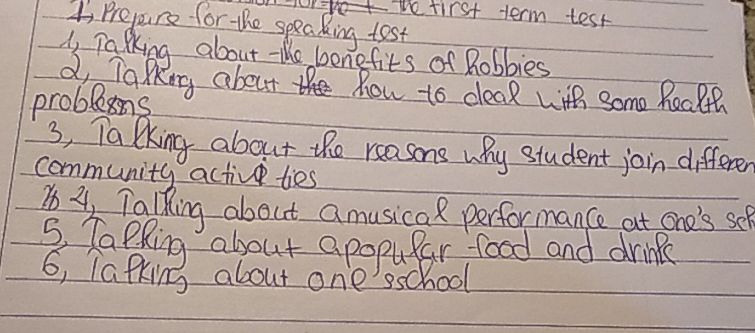 the first term test
1, Prepare for the speaking test
1, Talking about the benefits of hobbies
2, Talking about the how to deal with some health
problems
3, Talking about the reasons why student join differen
community activi ties
4, Talking about amusical performance at one's sch
5, Talking about apopular food and drink
6, Talking about one'sschool